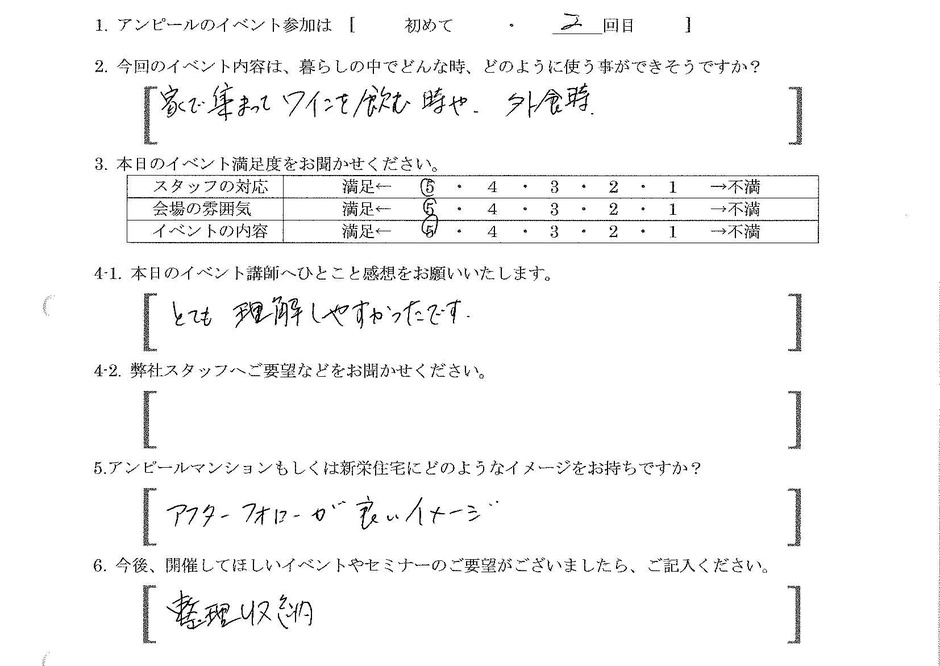 1. アンピールのイベント参加は [ 初めて ・ 2 回目 ]
2. 今回のイベント内容は、暮らしの中でどんな時、どのように使う事ができそうですか?
[家で集まってワインを飲む時や、外食時.]
3. 本日のイベント満足度をお聞かせください。
スタッフの対応 満足← 5 ・ 4 ・ 3 ・ 2 ・ 1 →不満
会場の雰囲気 満足← 5 ・ 4 ・ 3 ・ 2 ・ 1 →不満
イベントの内容 満足← 5 ・ 4 ・ 3 ・ 2 ・ 1 →不満
4-1. 本日のイベント講師へひとこと感想をお願いいたします。
[とても 理解しやすかったです.]
4-2. 弊社スタッフへご要望などをお聞かせください。
[ ]
5.アンピールマンションもしくは新栄住宅にどのようなイメージをお持ちですか?
[アフターフォローが良いイメージ]
6. 今後、開催してほしいイベントやセミナーのご要望がございましたら、ご記入ください。
[整理収納]